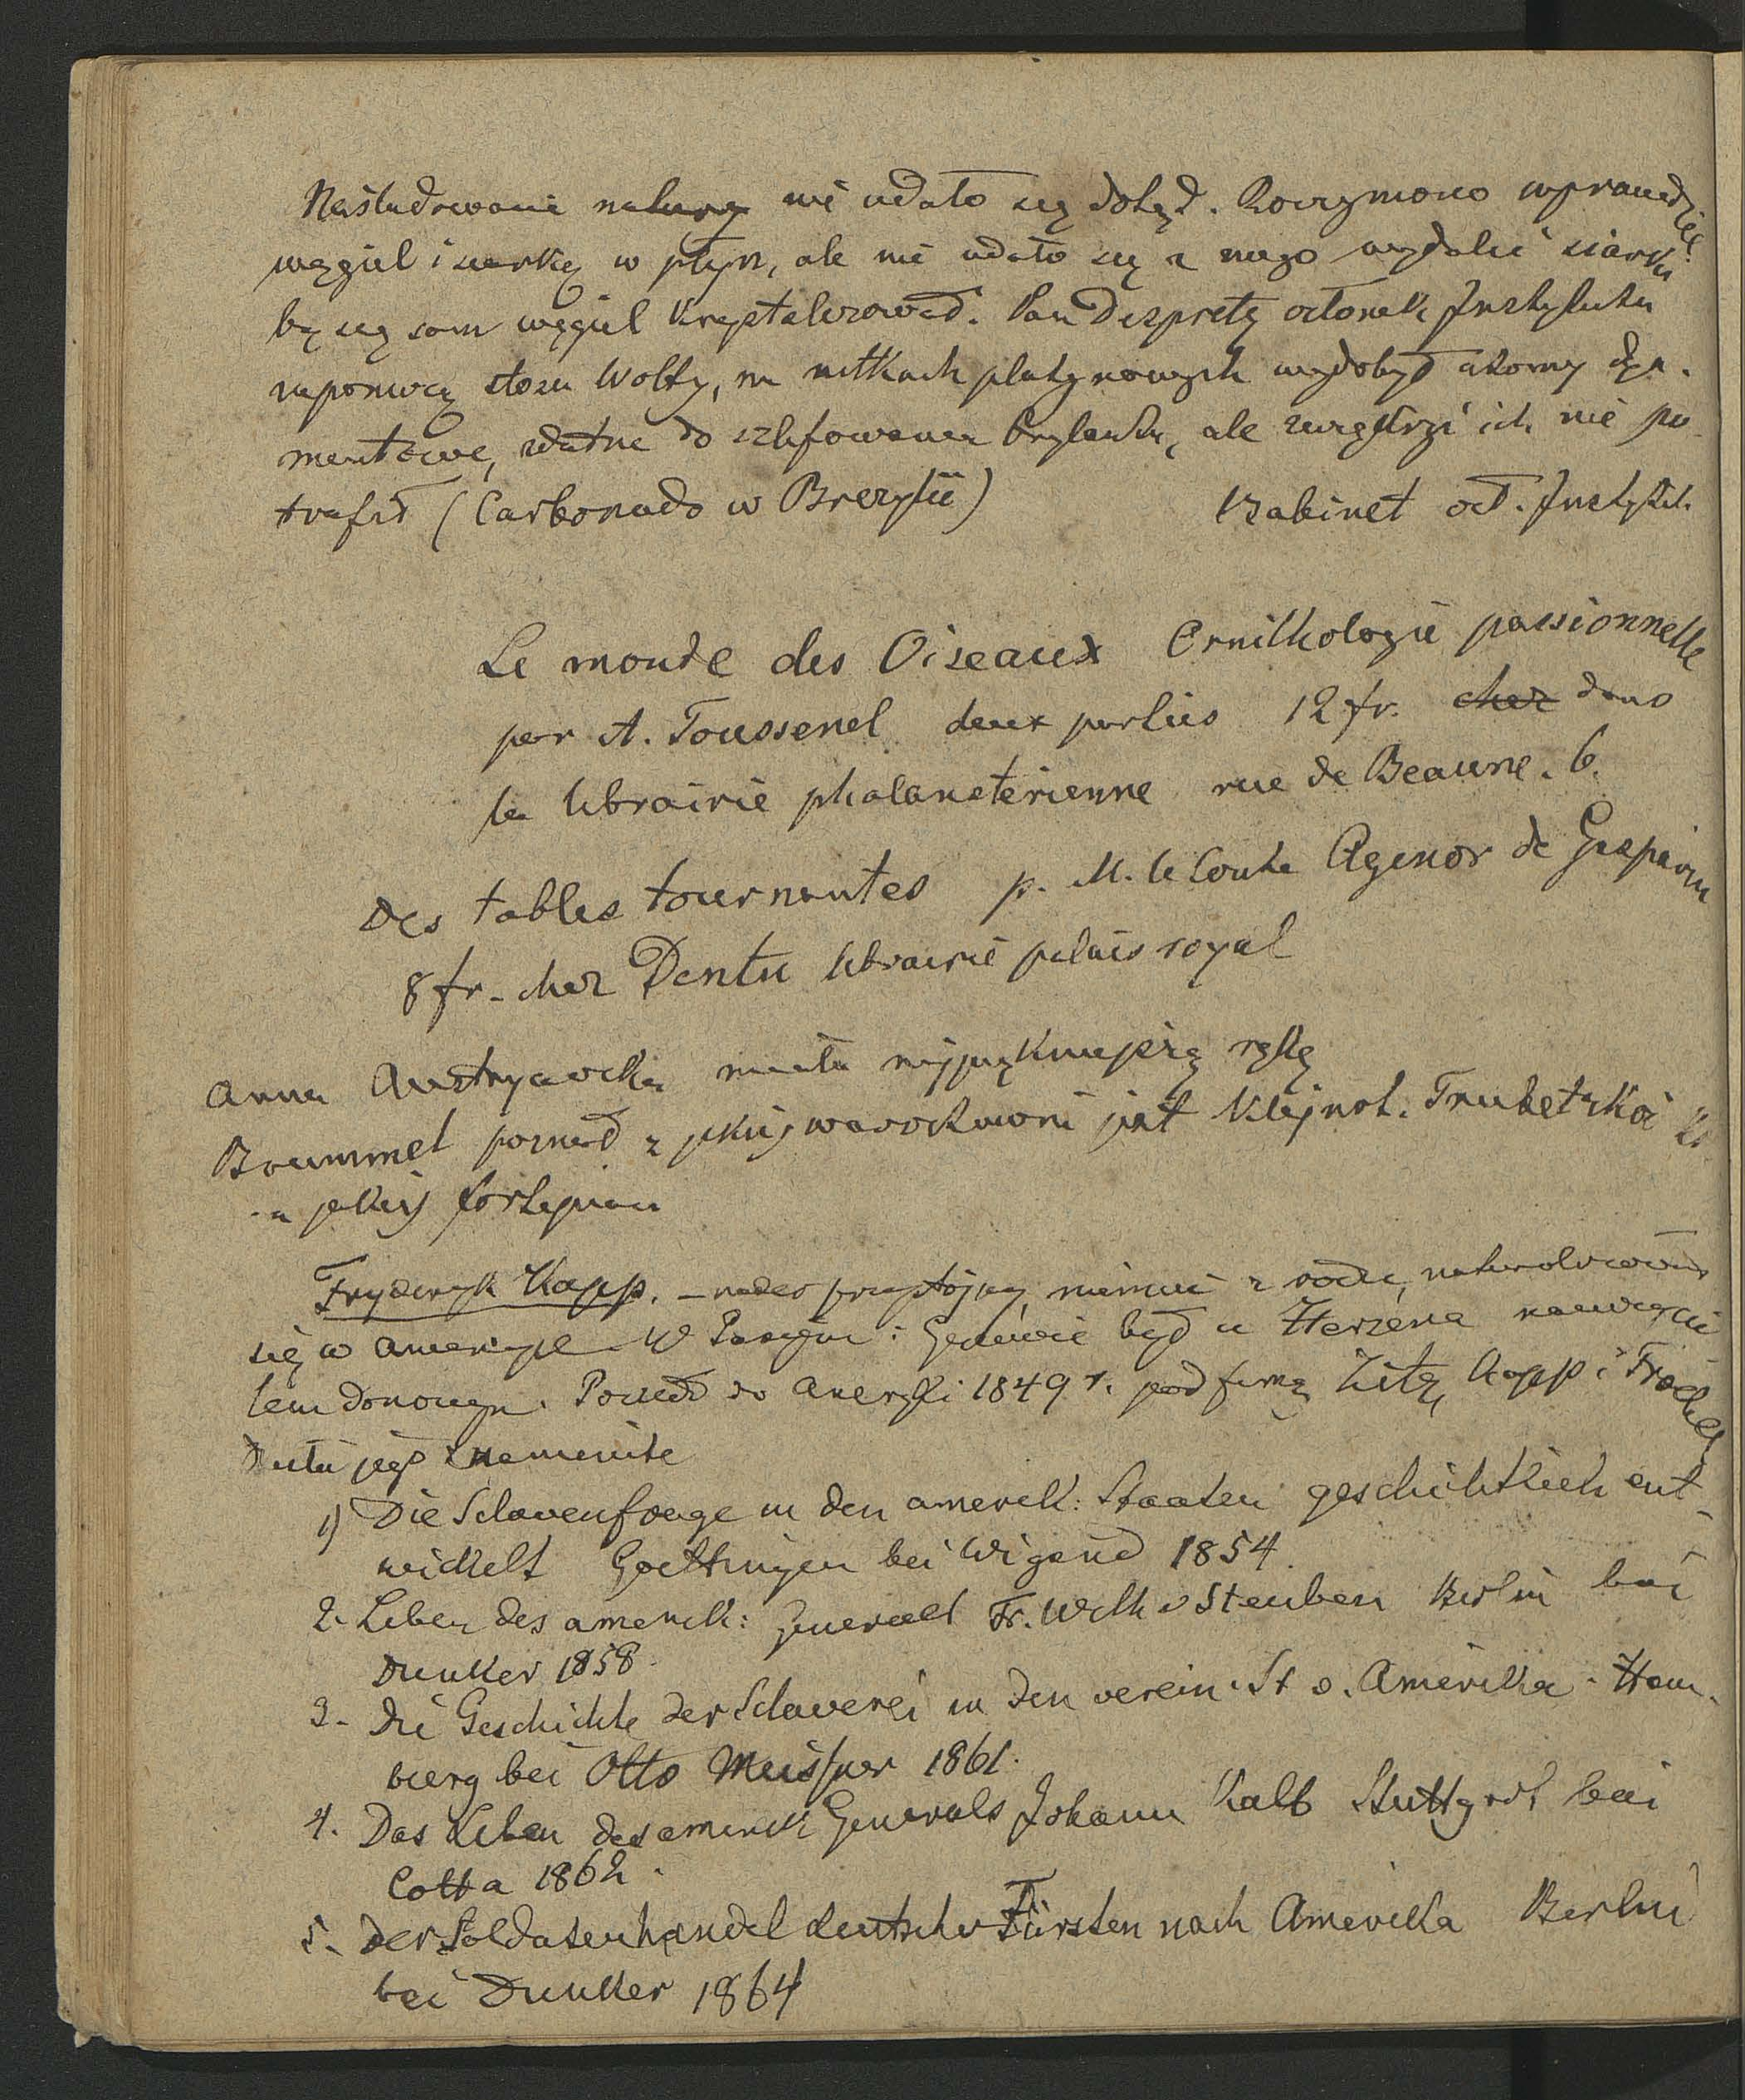 Naśladowanie natury nie udało się dotąd. Roczyniono wprawdzie
węgiel i siarkę w płyn, ale nie udało się z niego wydalić siarki
by się sam węgiel krystalizował. Pan Despretz członek Instytutu
zapomocą stosu Wolty, na nitkach platynowych wydobył atomy dya-
mentowe, zdatne do szlifowania brylantu, ale zwiększyć ich nie po-
trafił (Carbonado w Brezylii) Babinet czł. Instytut.
Le monde des Oiseaux Ornithologie passionnelle
par A. Toussenel deux parties 12 fr. chez dans
la librairie phalansterienne rue de Beaune. 6.
Des tables tournantes p. M. le Comte Agenor de Gasparin
8 fr. chez Dentu librairie palais royal
Anna Austryacka miała najpiękniejszą rękę
Brummel poznał z jakiej warsztatowni jest klejnot. Trubetzkoi
z jakiej fortepian
Fryderyk Kapp. – nader przystojny, niemiec z rodu, naturalizował
się w Ameryce W Paryżu i Genewie był u Herzena nauczycie
lem domowym. Poszedł do Ameryki 1849 r. pod firmą Zitz, Kapp i Froebel
Dzieła jego znamienite
1) Die Sclavenfrage in den amerik: Staaten geschichtlich ent-
wickelt Goettingen bei Wigand 1854.
2. Leben des amerik: General Fr. Wilh v Steuben Berlin bei
Dunker 1858.
3. Die Geschichte der Sclaverei in den verein. St v. Amerika. Ham-
burg bei Otto Meissner 1861.
4. Das Leben des amerik Generals Johann Kalb Stuttgart bei
Cotta 1862.
5. Der Soldatenhandel deutscher Fürsten nach Amerika Berlin
bei Dunker 1864